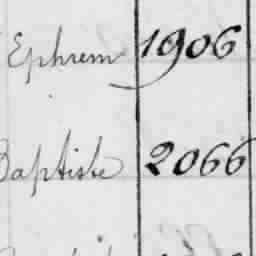 Ephrem 1906
Baptiste 2066